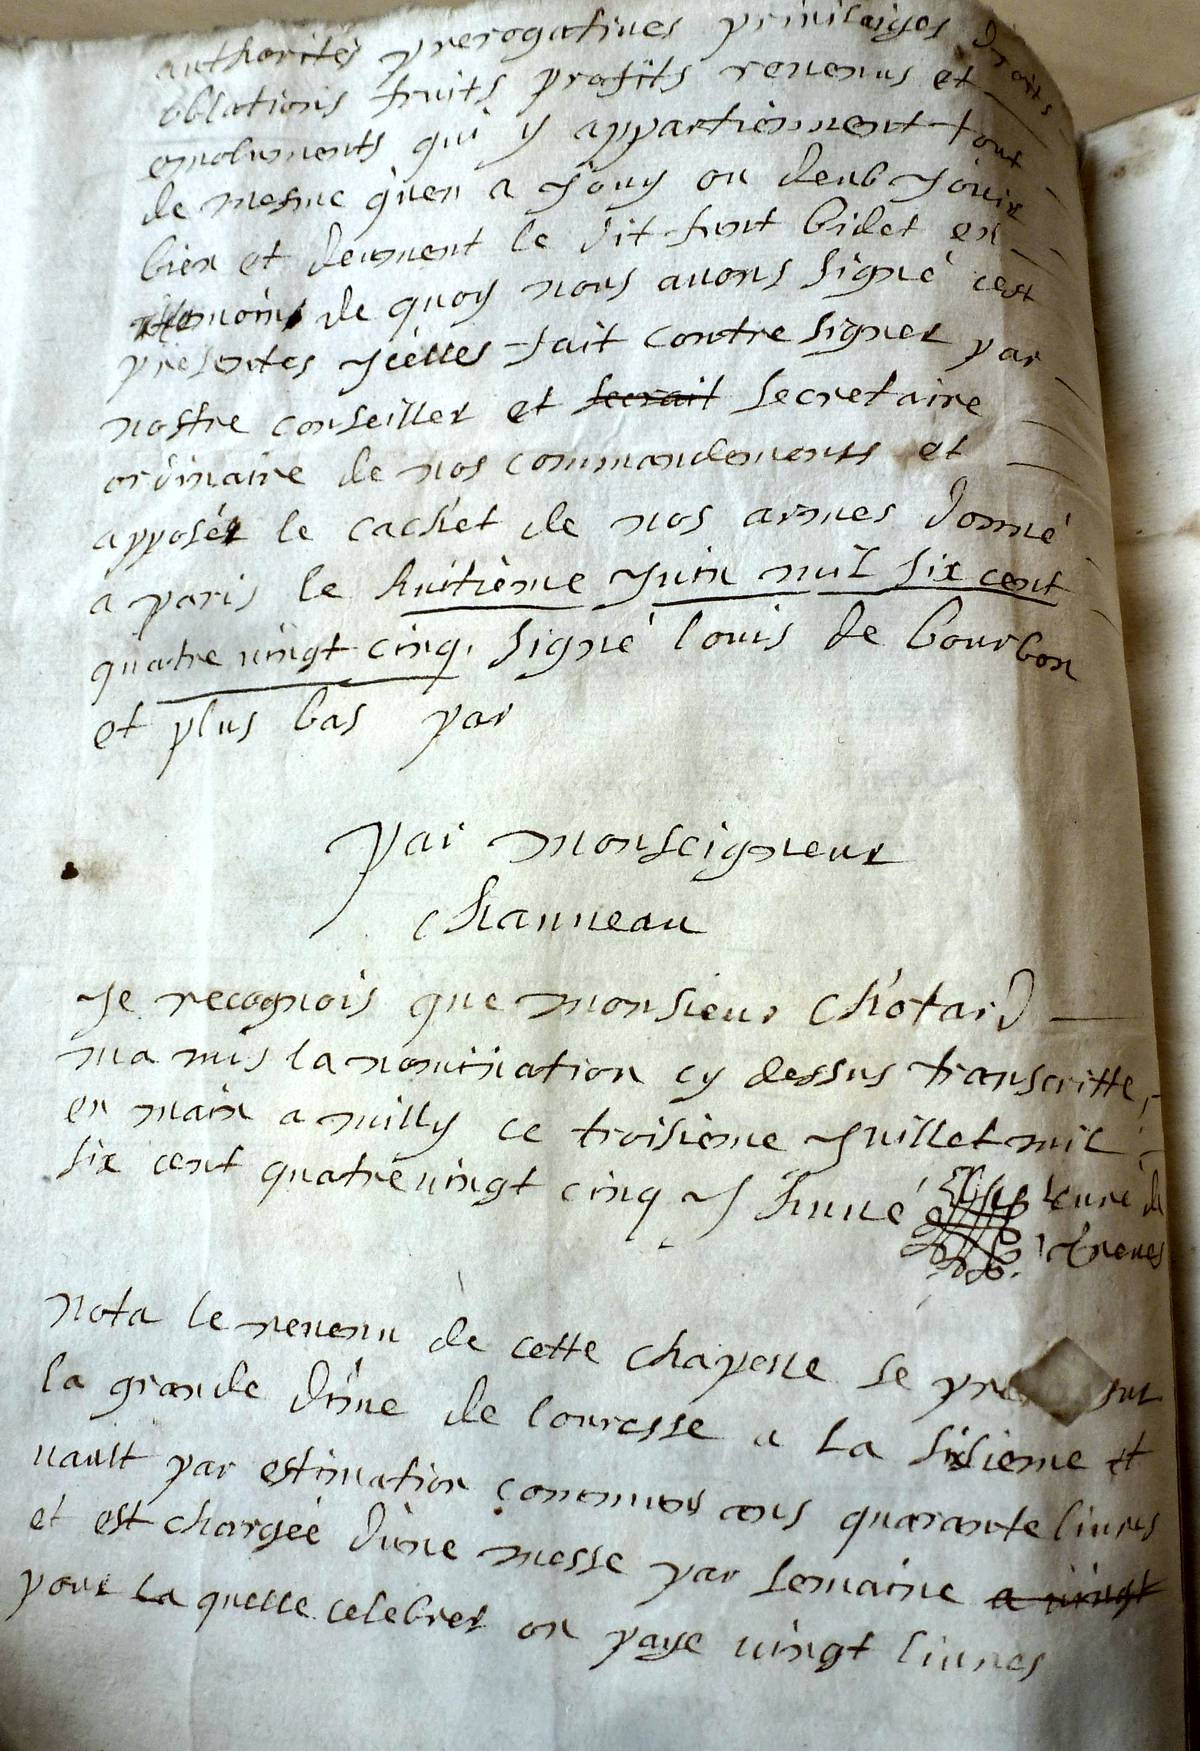 authorités prerogatiues priuilaiges droits
oblations fruits profits reuenus et
emoluments qui y appartiennent tout
de mesme qu'en a jouy ou deub jouir
bien et deument le dit funt bidet en
temoins de quoy nous auons signé cest
presentes jcelles fait contre signer par
nostre conseiller et secrait secretaire
ordinaire de nos commandements et
apposér le cachet de nos armes donné
a paris le huitième juin mil six cent
quatre uingt cinq. signé louis de bourbon
et plus bas par
par monseigneur
chauueau
je recognois que monsieur chotard
ma mis la nomination cy dessus transcritte
en main a milly ce troisieme juillet mil
six cent quatre uingt cinq
cure de
treues
nota le reuenu de cette chapelle se sur
la grande dime de louresse a la sisieme et
uault par estimation communes ans quarante liures
et est chargée d'une messe par semaine a uingt
pour la quelle celebrer on paye uingt liures